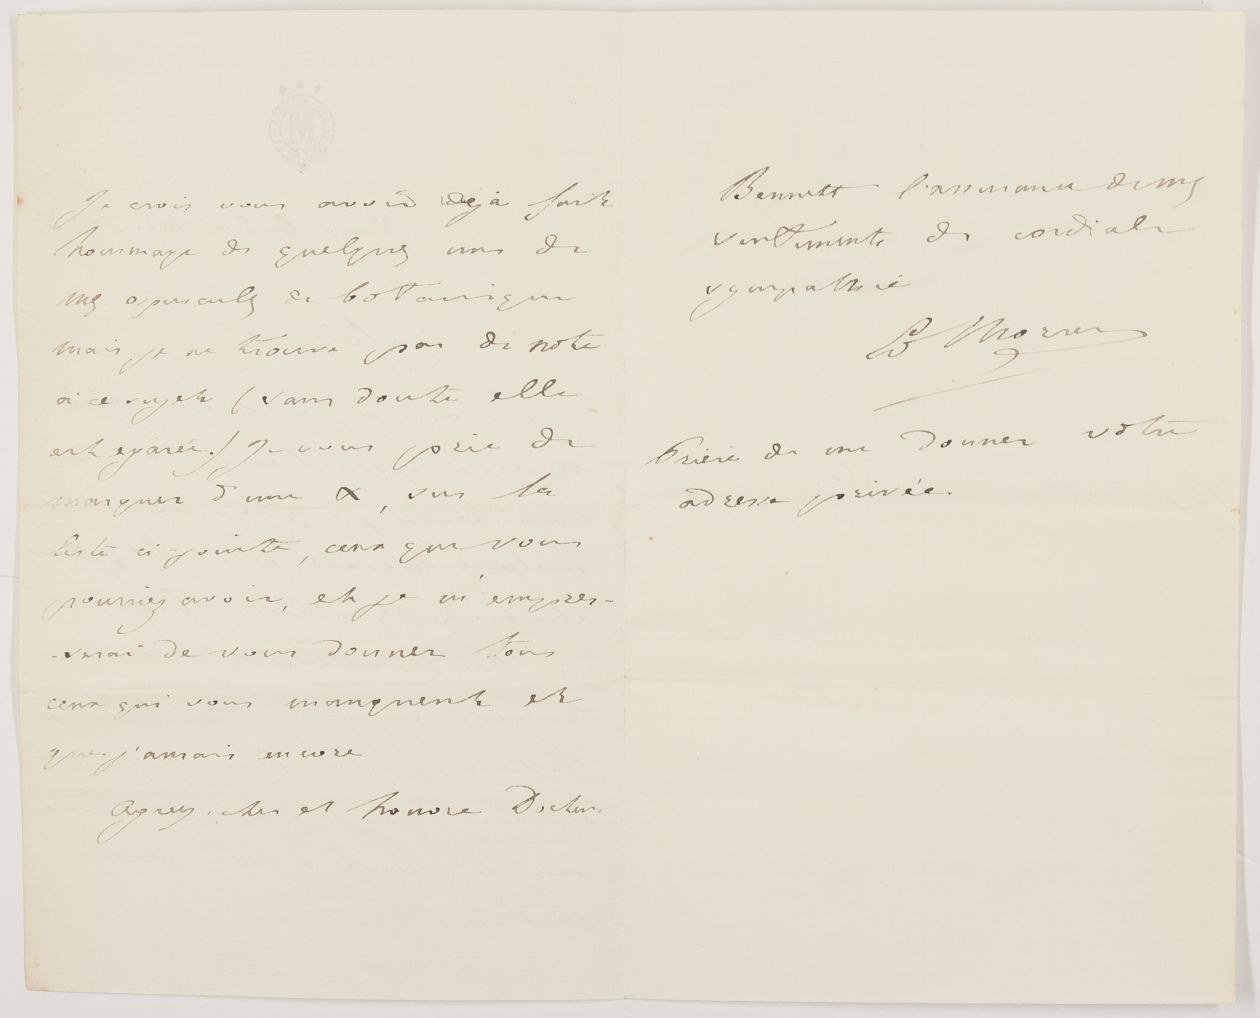 Je crois vous avoir déjà fait
hommage de quelques uns de
mes opuscules de botanique
mais je ne trouve pas de note
à ce sujet (sans doute elle
est egarée.) Je vous prie de
marquer d'une x, sur la
liste ci-jointe, ceux que vous
pourriez avoir, et je m'empres-
-serai de vous donner tous
ceux qui vous manquent et
que j'aurais encore
Agreez, cher et honore Docteur
Bennett l'assurance de mes
sentiments de cordiale
sympathie
Ed Morren
Prière de me donner votre
adresse privée.
M